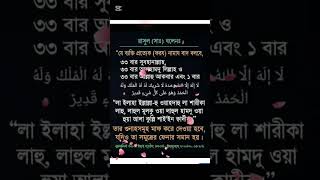 রাসুল (সাঃ) বলেনঃ
"যে ব্যক্তি প্রত্যেক (ফরয) নামায বাদ বলবে,
৩৩ বার সুবহানাল্লাহ,
৩৩ বার আলহামদু লিল্লাহ ও
৩৩ বার আল্লাহু আকবার এবং ১ বার
لَا إِلٰهَ إِلَّا اللهُ وَحْدَهُ لَا شَرِيْكَ لَهُ لَهُ الْمُلْكُ وَلَهُ
الْحَمْدُ وَهُوَ عَلٰى كُلِّ شَيْءٍ قَدِيْرٌ
"লা ইলাহা ইল্লাল্লা-হু ওয়াহদাহু লা শারীকা
লাহু, লাহুল মূলকু ওয়া লাহুল হামদু ওয়া
হুয়া আলা কুল্লি শাইইন কাদীর"
তার গুনাহসমূহ মাফ করে দেওয়া হবে,
যদিও তা সমুদ্রের ফেনার সমান হয়।